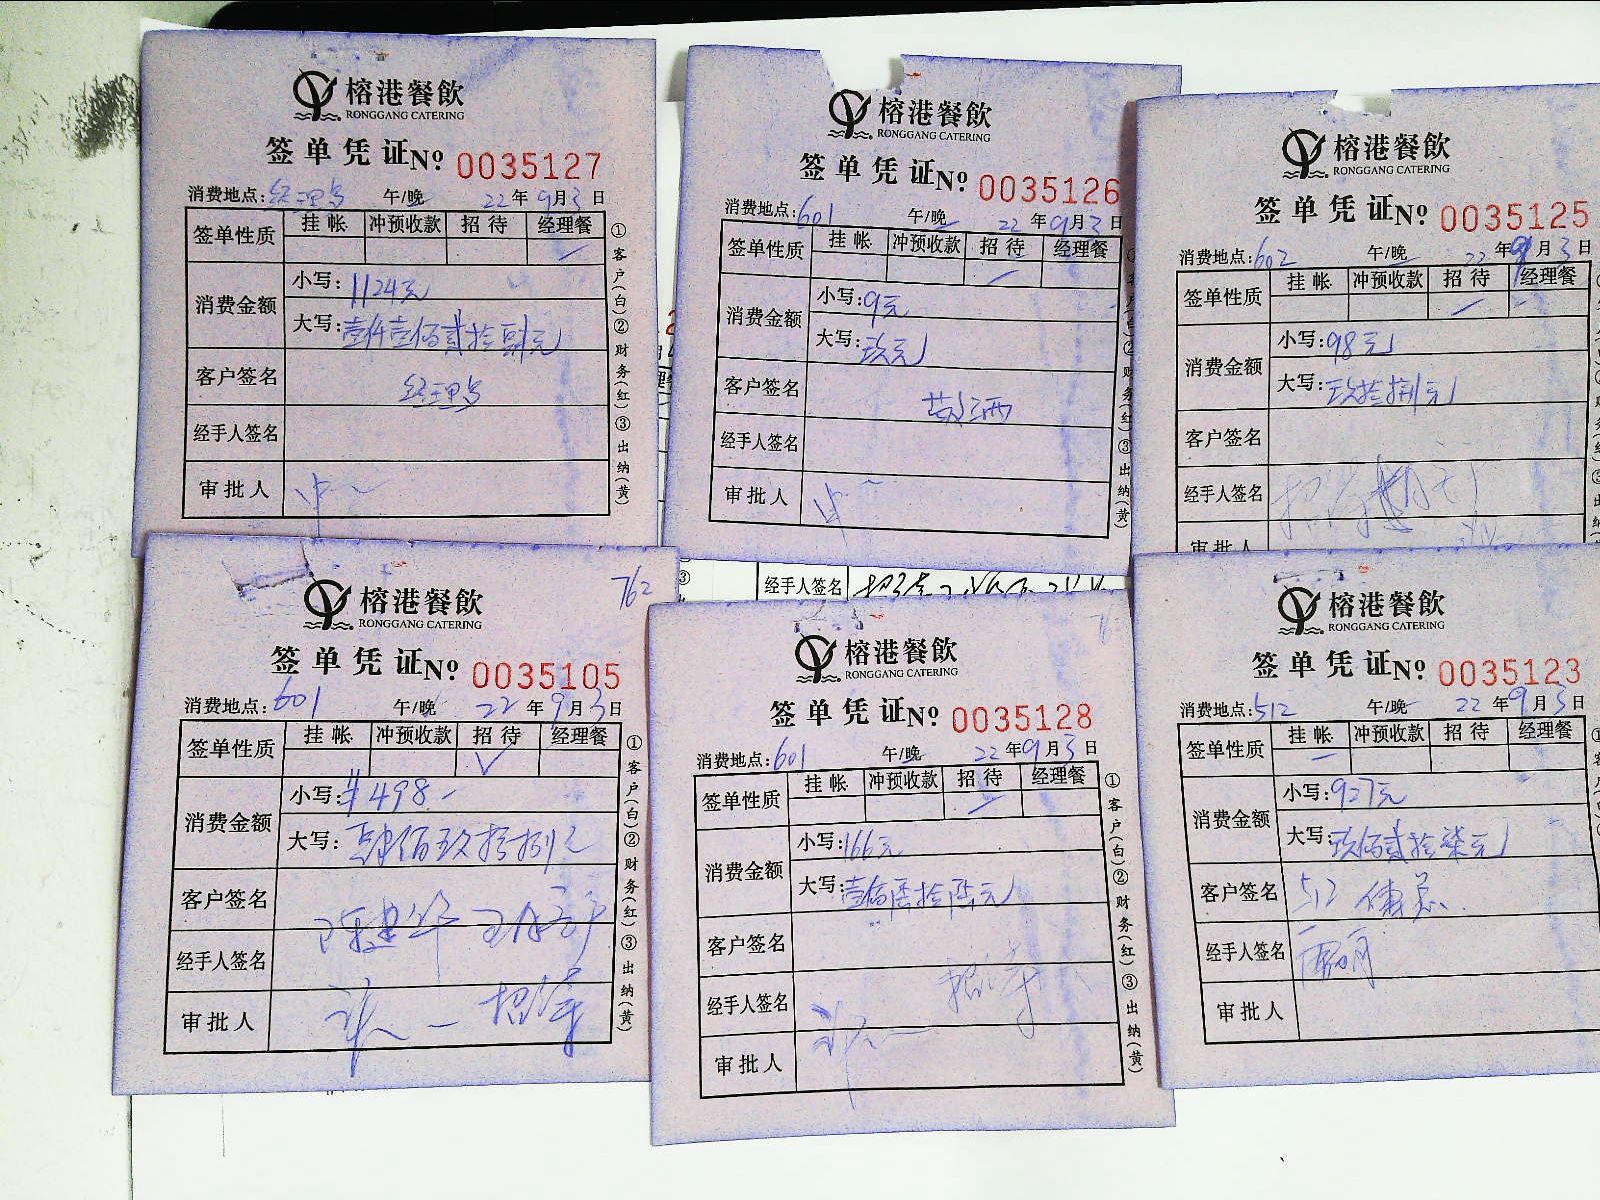 榕港餐飲
RONGGANG CATERING
签单凭证 No 0035127
消费地点: 午/晚 22年9月3日
签单性质 挂帐 冲预收款 招待 经理餐
消费金额 小写:1124元
大写:壹仟壹佰贰拾肆元
客户签名
经手人签名
审批人
①客户(白)②财务(红)③出纳(黄)
榕港餐飲
RONGGANG CATERING
签单凭证 No 0035126
消费地点:601 午/晚 22年9月3日
签单性质 挂帐 冲预收款 招待 经理餐
消费金额 小写:9元
大写:玖元
客户签名
经手人签名
审批人
榕港餐飲
RONGGANG CATERING
签单凭证 No 0035125
消费地点:602 午/晚 22年9月3日
签单性质 挂帐 冲预收款 招待 经理餐
消费金额 小写:98元
大写:玖拾捌元
客户签名
经手人签名
审批人
762
榕港餐飲
RONGGANG CATERING
签单凭证 No 0035105
消费地点:601 午/晚 22年9月3日
签单性质 挂帐 冲预收款 招待 经理餐
消费金额 小写:¥498-
大写:肆佰玖拾捌元
客户签名
经手人签名
审批人 招待
①客户(白)②财务(红)③出纳(黄)
经手人签名
榕港餐飲
RONGGANG CATERING
签单凭证 No 0035128
消费地点:601 午/晚 22年9月3日
签单性质 挂帐 冲预收款 招待 经理餐
消费金额 小写:166元
大写:壹佰陆拾陆元
客户签名
经手人签名 招待
审批人
①客户(白)②财务(红)③出纳(黄)
榕港餐飲
RONGGANG CATERING
签单凭证 No 0035123
消费地点:512 午/晚 22年9月3日
签单性质 挂帐 冲预收款 招待 经理餐
消费金额 小写:927元
大写:玖佰贰拾柒元
客户签名 512
经手人签名
审批人